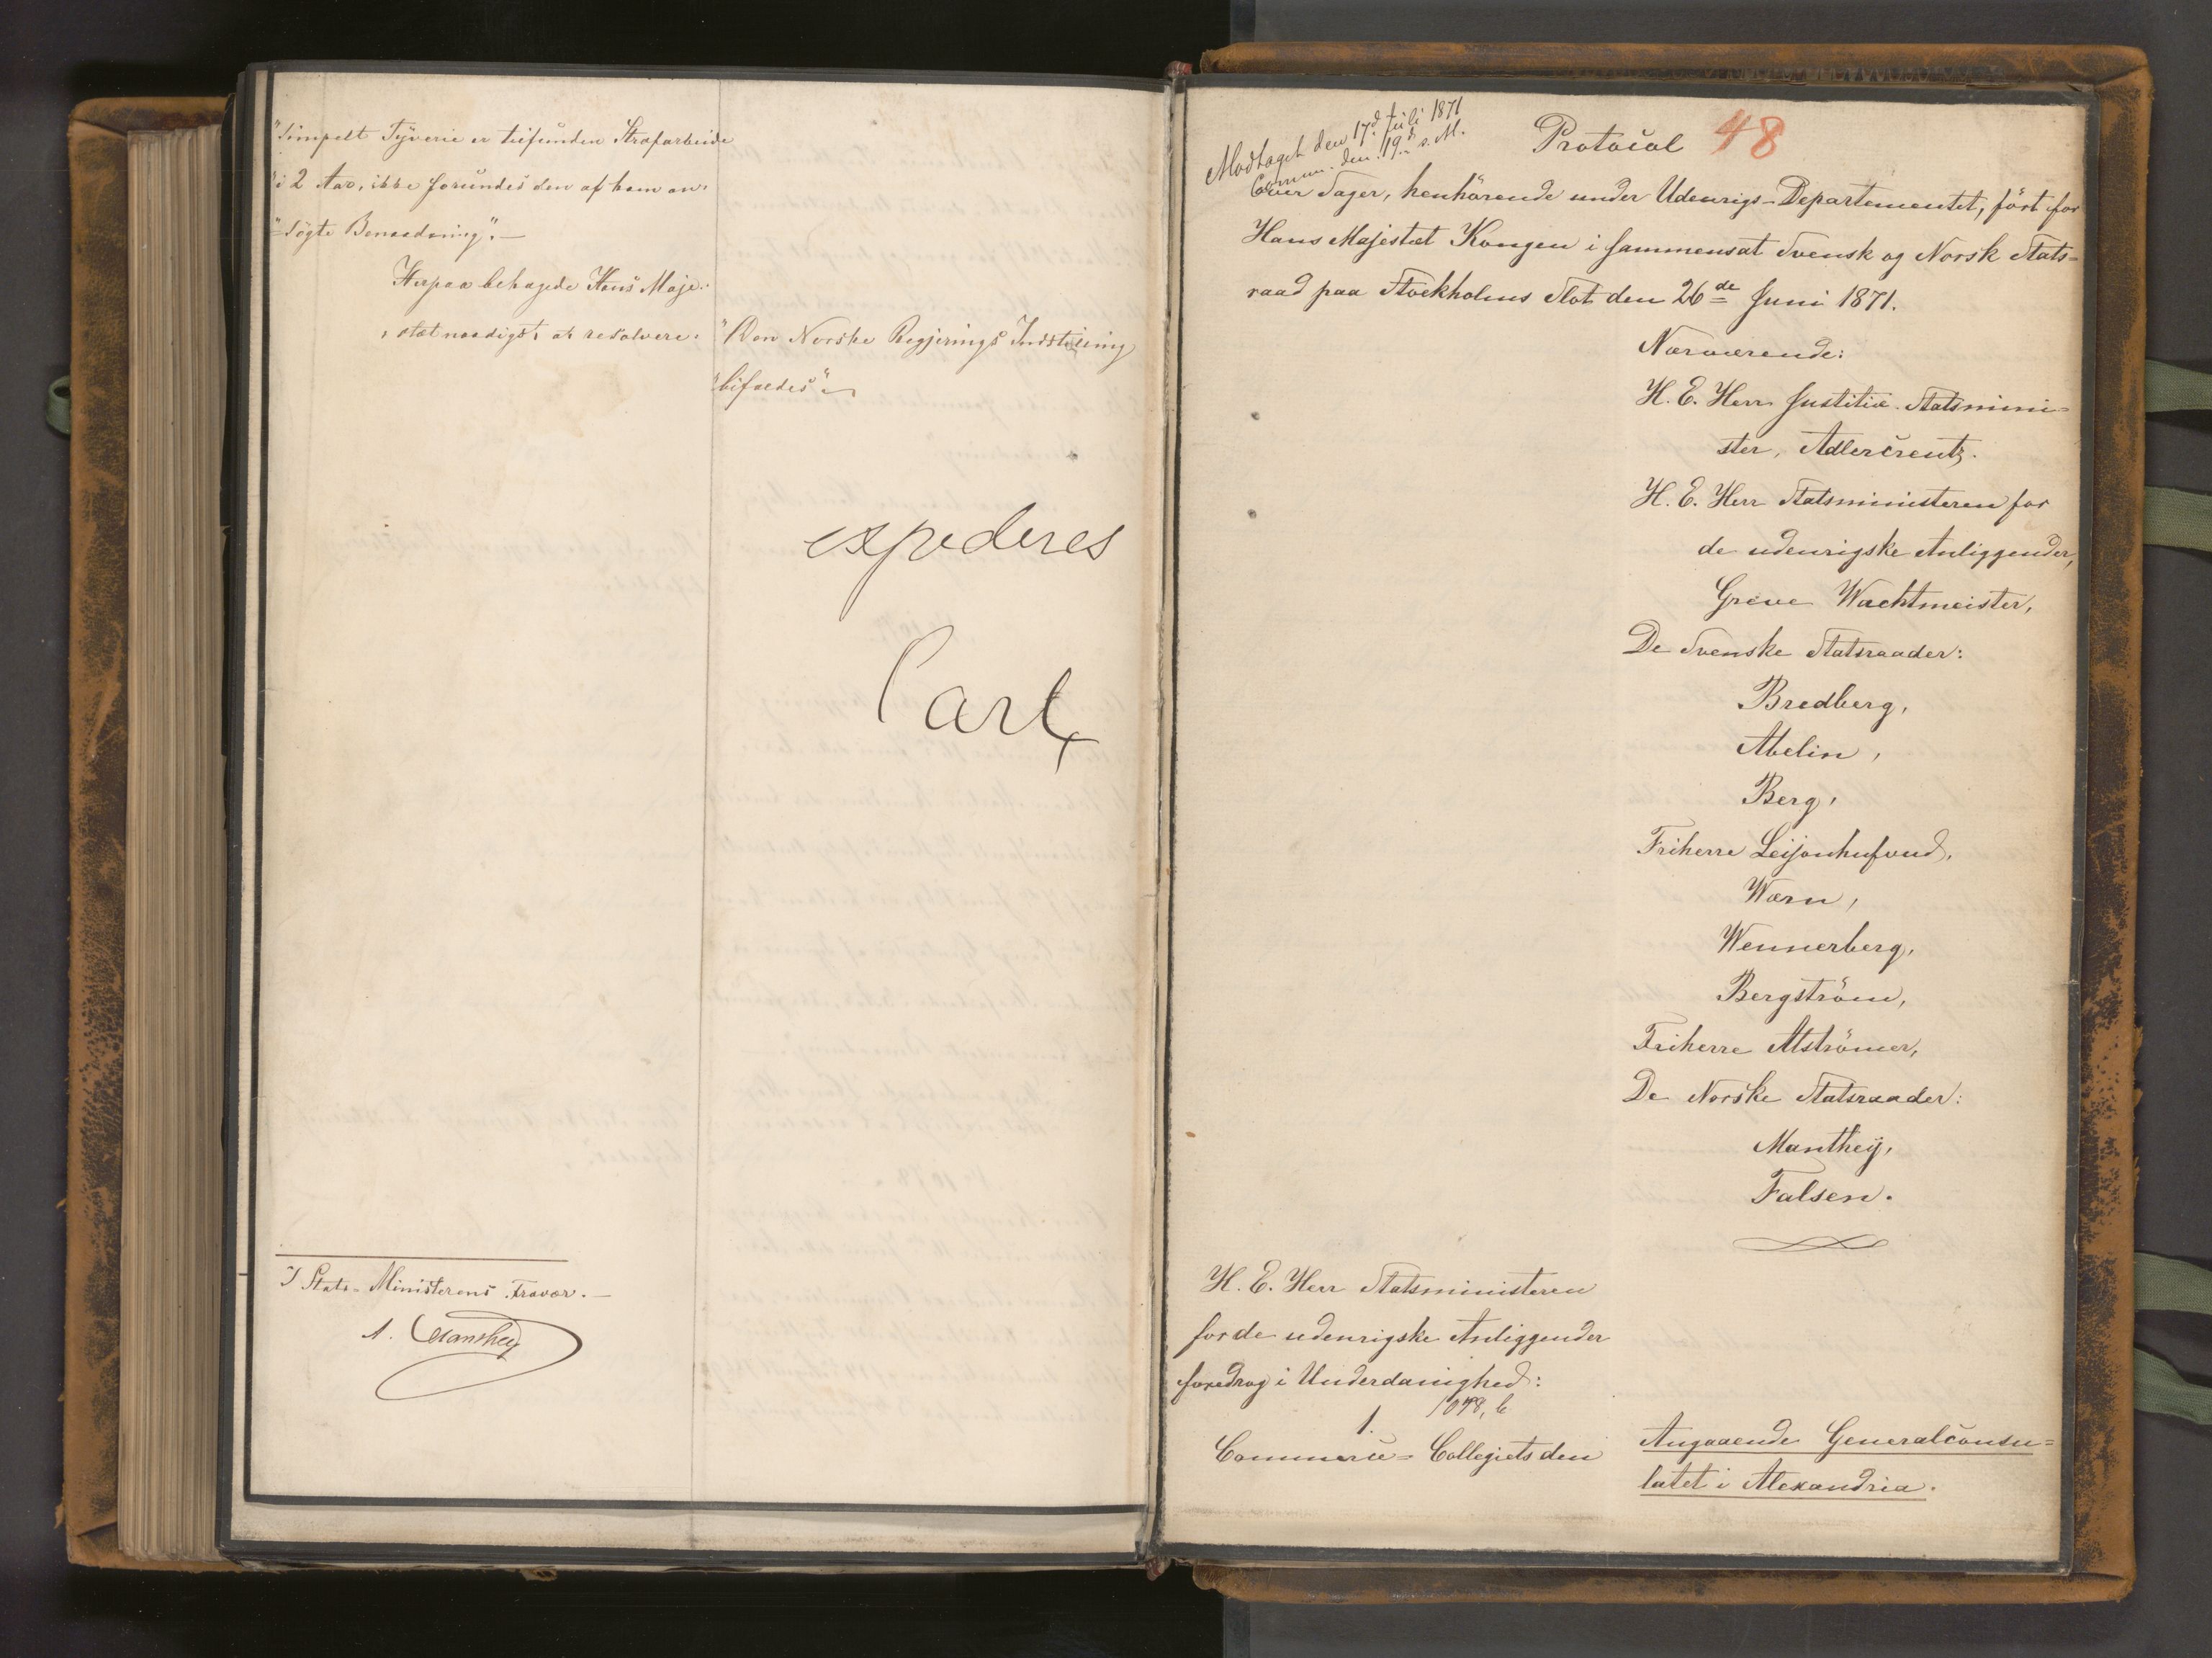 "Simpelt Tyverie er tilfunden Strafarbeide
"i 2 Aar, ikke forundes den af ham an-
"søgte Benaadning".—
Herpaa behagede Hans Maje-
stæt naadigst at resolvere:
"Den Norske Regjerings Indstilling
"bifaldes".
expederes
Carl
I Stats-Ministerens Fravær.—
A. Manthey
Modtaget den 17d Juli 1871
Commun. den 19d s. M.
Protocol 48
Over Sager, henhörende under Udenrigs-Departementet, fört for
Hans Majestæt Kongen i sammensat Svensk og Norsk Stats=
raad paa Stockholms Slot den 26de Juni 1871.
Nærværende:
H. E. Herr Justitiæ-Statsmini=
ster, Adlercreutz.
H. E. Herr Statsministeren for
de udenrigske Anliggender,
Greve Wachtmeister,
De Svenske Statsraader:
Bredberg,
Abelin,
Berg,
Friherre Leijonhufvud,
Wærn,
Wennerberg,
Bergström,
Friherre Alströmer,
De Norske Statsraader:
Manthey,
Falsen.
H. E. Herr Statsministeren
for de udenrigske Anliggender
foredrog i Underdanighed:
1. 1078, b
Commerce=Collegiets den
Angaaende Generalconsu=
latet i Alexandria.